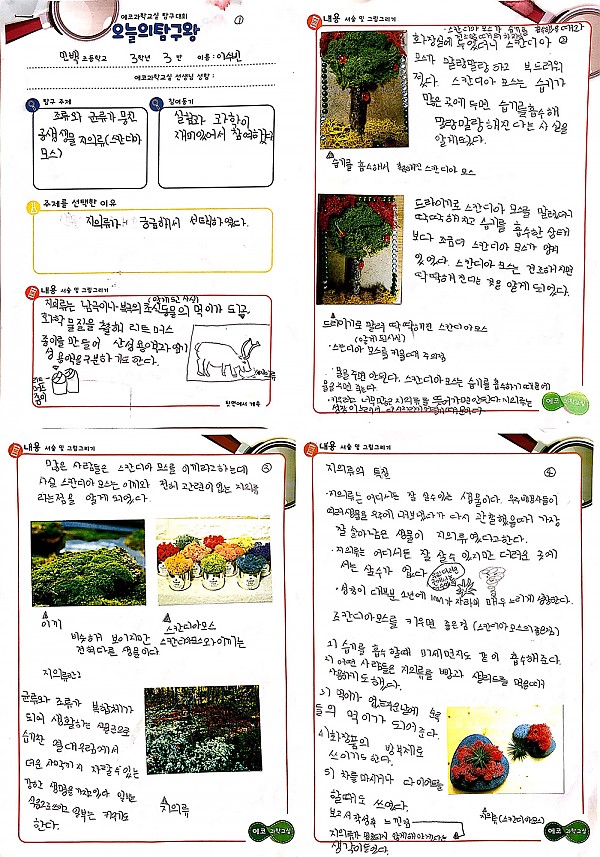 에코과학교실 탐구대회
오늘의탐구왕
①
민백 초등학교 3학년 3 반 이름 : 이수빈
에코과학교실 선생님 성함 :
탐구 주제
조류와 균류가 뭉친
공생생물 지의류(스칸디아
모스)
참여동기
실험과 과학이
재미있어서 참여했다
주제를 선택한 이유
지의류가 궁금해서 선택하였다.
내용 서술 및 그림그리기
(알게 된 사실)
지의류는 남극이나 북극의 초식동물의 먹이가 되고,
화학 물질을 통해 리트머스
종이를 만들어 산성 용액과 염기
성 용액을 구분하기도 한다.
리트
머스
종이
뒷면에서 계속
내용 서술 및 그림그리기
②
화장실에 두었더니 스칸디아
모스가 말랑말랑 하고 부드러워
졌다. 스칸디아 모스는 습기가
많은 곳에 두면 습기를 흡수해
말랑말랑 해진다는 사실을
알게 되었다.
습기를 흡수해서 스칸디아 모스
드라이기로 스칸디아 모스를 말렸더니
딱딱해지고 습기를 흡수한 상태
보다 조금더 스칸디아 모스가
있었다. 스칸디아 모스는 건조해지면
딱딱해진다는 것을 알게 되었다.
드라이기로 말려 딱딱해진 스칸디아모스
(알게 된 사실)
·스칸디아 모스를 키울때 주의점
·물을 주면 안된다. 스칸디아 모스는 습기를 흡수하기 때문에
에코 과학교실
내용 서술 및 그림그리기
③
많은 사람들은 스칸디아 모스를 이끼라고 하는데
사실 스칸디아 모스는 이끼와 전혀 관련이 없는 지의류
라는점을 알게 되었다.
이끼
스칸디아모스
비슷하게 보이지만 스칸디아모스와 이끼는
전혀 다른 생물이다
지의류란?
균류와 조류가 복합체가
되어 생활하는 식물군으로
습기찬 열대우림에서
더운 사막까지 자랄 수 있는
강한 생명을 가졌다. 일부는
식용으로 쓰이고 일부는
한다.
지의류
에코 과학교실
내용 서술 및 그림그리기
④
지의류의 특징
·지의류는 어디서든 잘 살수 있는 생물이다. 우주비행사들이
여러생물을 우주에 내보냈다가 다시 관찰했을때 가장
잘 살아남은 생물이 지의류였다고한다.
·지의류는 어디서든 잘 살 수 있지만 더러운 곳에
서는 살수가 없다
·성장이 대부분 1년에 1mm가 자라며 매우 느리게 성장한다.
스칸디아모스를 키우면 좋은점 (스칸디아모스의 좋은점)
1) 습기를 흡수할때 미세먼지도 같이 흡수해준다.
2) 어떤 사람들은 지의류를 빵과 샐러드를 먹을때
사용하기도 했다.
3) 먹이가 없는 겨울날에 순록
들의 먹이가 되어준다.
4) 화장품의 방부제로
쓰이기도 한다.
5) 차를 마시거나 다이어트를
할때도 쓰였다.
보고서 작성후 느낀점
지의류(스칸디아모스)
생각이 들었다.
에코 과학교실